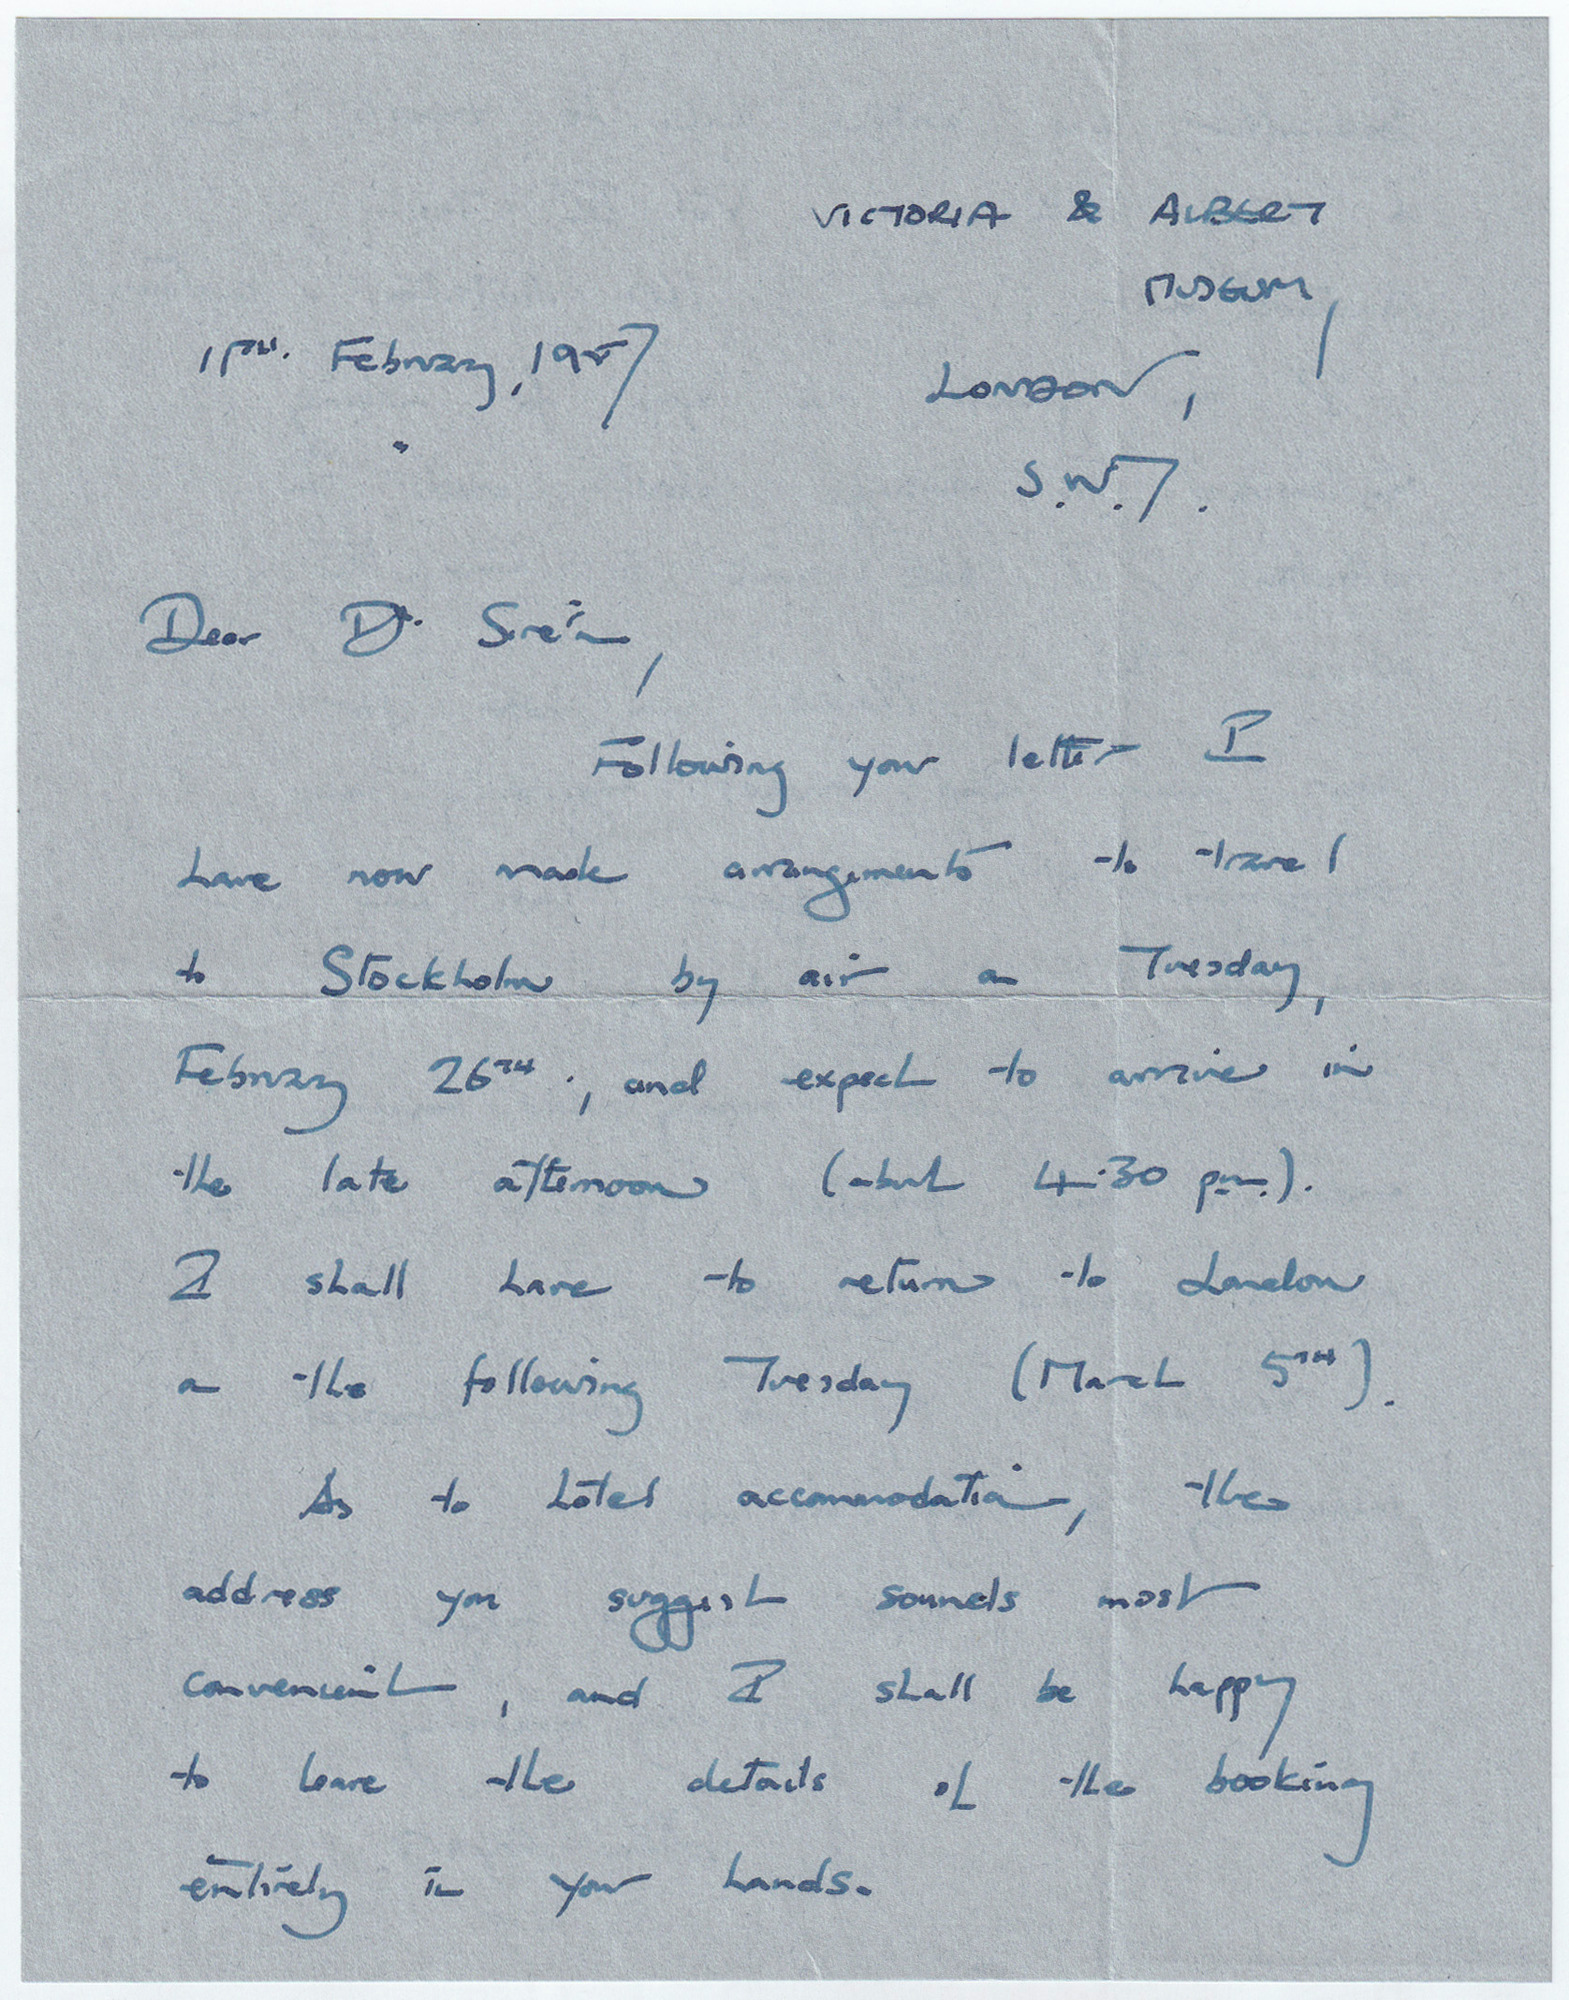 VICTORIA & ALBERT
MUSEUM,
15TH. February, 1957
LONDON,
S.W.7.
Dear Dr. Sirén,
Following your letter I
have now made arrangements to travel
to Stockholm by air on Tuesday,
February 26TH., and expect to arrive in
the late afternoon (about 4.30 p.m.).
I shall have to return to London
on the following Tuesday (March 5TH).
As to hotel accommodation, the
address you suggest sounds most
convenient, and I shall be happy
to leave the details of the booking
entirely in your hands.